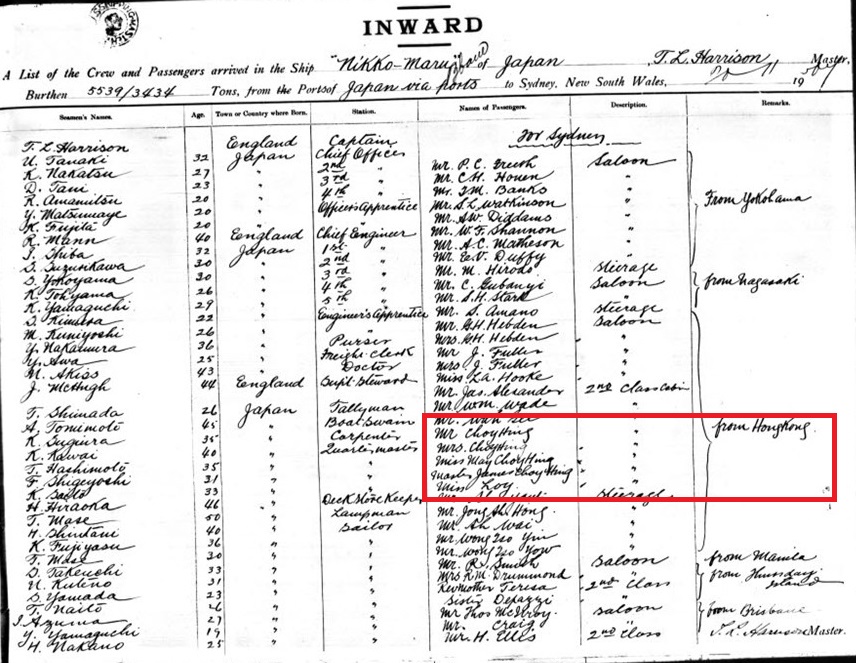 INWARD
A List of the Crew and Passengers arrived in the Ship "Nikko-Maru" of Japan T. L. Harrison Master,
Burthen 5539/3434 Tons, from the Ports of Japan via ports to Sydney, New South Wales, 11 19
Seamen's Names. Age. Town or Country where Born. Station. Names of Passengers. Description. Remarks.
For Sydney
T. L. Harrison England Captain
U. Tanaki 32 Japan Chief Officer Mr. P. C. Saloon
K. Nakatsu 27 " 2nd " Mr. C. H. Houen "
D. Tani 23 " 3rd " Mr. Banks "
R. Amamitsu 20 " 4th " Mr. S. L. Watkinson " From Yokohama
Y. Matsumaye 20 " Officer's Apprentice Mr. A. W. Diddams "
K. Fujita 20 " " Mr. W. F. Shannon "
R. Mann 40 England Chief Engineer Mr. A. C. Matheson "
T. Shiba 32 Japan 1st " Mr. E. V. Duffy "
S. Suzurikawa 30 " 2nd " Mr. M. Hirodo Steerage
S. Yokoyama 30 " 3rd " Mr. C. Gubanyi Saloon from Nagasaki
K. Tohyama 26 " 4th " Mr. S. H. Stark "
K. Yamaguchi 29 " 5th " Mr. S. Amano Steerage
S. Kimura 22 " Engineer's Apprentice Mr. G. H. Hebden Saloon
M. Kuniyoshi 26 " " Mrs. G. H. Hebden "
Y. Nakamura 36 " Purser Mr. J. Fuller "
Y. Awa 25 " Freight Clerk Mrs. J. Fuller "
N. Akiss 43 " Doctor Miss L. A. Hooke "
J. McHugh 44 England Supt. Steward Mr. Jas. Alexander 2nd Class Cabin
Mr. Wm. Wade "
T. Shimada 26 Japan Tallyman Mr. Wah "
A. Tomimoto 45 " Boatswain Mr Choy Hing " from HongKong
K. Sugiura 35 " Carpenter Mrs. Choy Hing "
K. Kawai 40 " Quartermaster Miss May Choy Hing "
T. Hashimoto 35 " " Master James Choy Hing "
F. Shigeyoshi 31 " " Miss Loy "
K. Saito 33 " " Mr. Steerage
H. Hiraoka 46 " Deck Store Keeper Mr. Jong Ah Hong "
T. Mase 50 " Lampman Mr. Ah Wai "
H. Shintani 40 " Sailor Mr. Wong Tso Yin "
K. Fujiyasu 36 " " Mr. Wong Tso Yow "
T. Mase 30 " " Mr. R. Smith Saloon from Manila
S. Takeuchi 33 " " Mrs. K. M. Drummond " from Thursday Island
U. Kuteno 31 " " Rev. Mother Teresa 2nd Class
S. Yamada 23 " " Sister "
T. Naito 26 " " Mr Thos McIlroy Saloon from Brisbane
S. Azuma 27 " " Mr. Craig "
Y. Yamaguchi 19 " " Mr. H. Ellis 2nd Class T. L. Harrison Master.
H. Nakano 25 " "